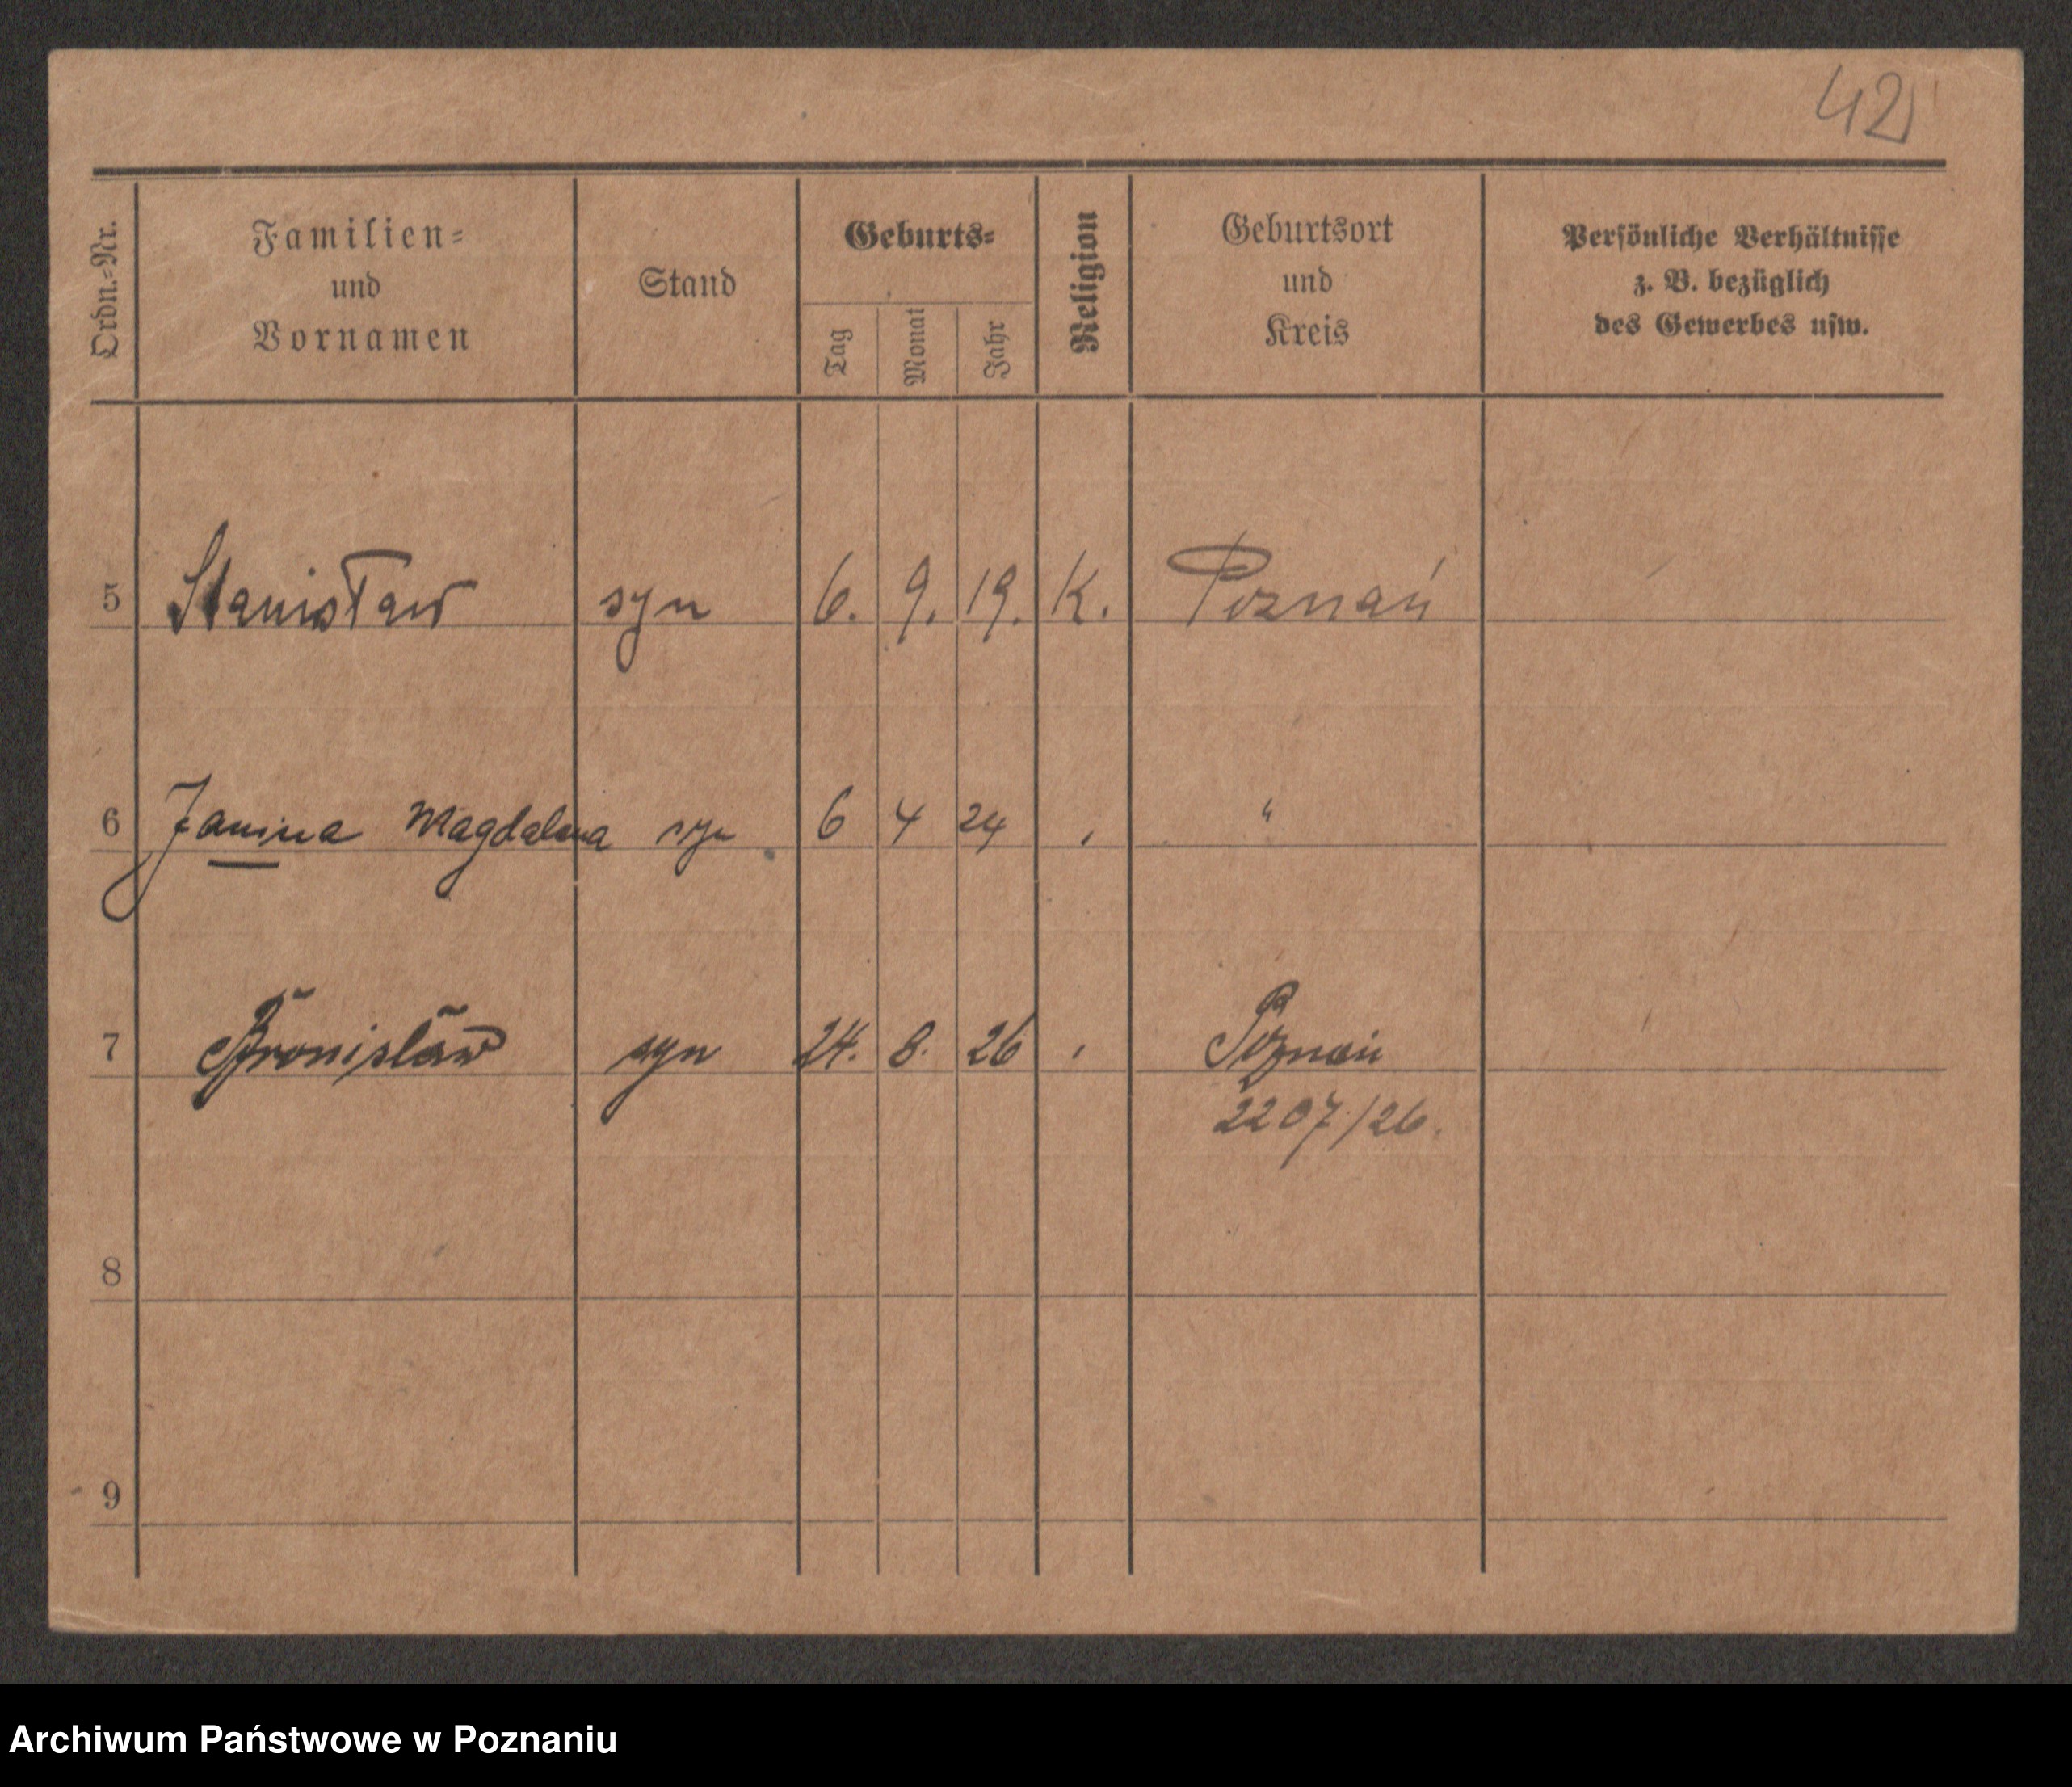 42
Ordn.-Nr.
Familien-
und
Vornamen
Stand
Geburts-
Tag
Monat
Jahr
Religion
Geburtsort
und
Kreis
Persönliche Verhältnisse
z. B. bezüglich
des Gewerbes usw.
5 Stanisław syn 6. 9. 19. K. Poznań
6 Janina Magdalena syn 6 4 24 , "
7 Bronisław syn 24. 8. 26 , Poznań
2207/26.
8
9
Archiwum Państwowe w Poznaniu